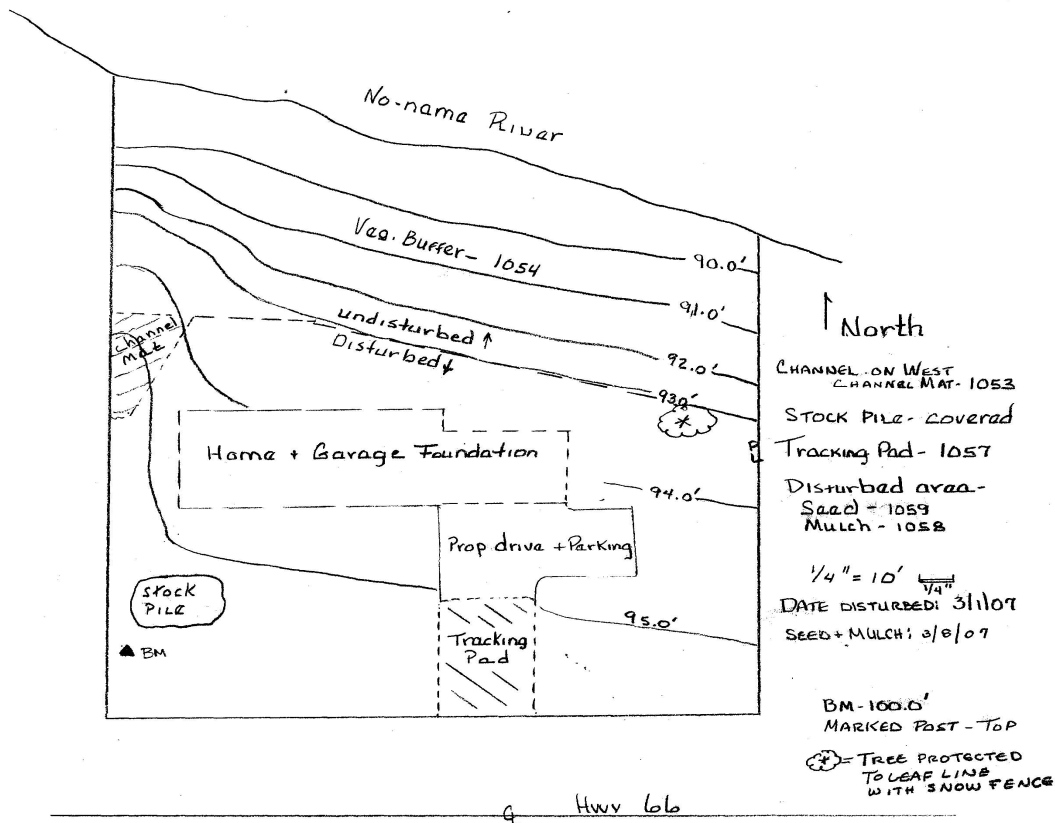 No-name River
Veg. Buffer - 1054
90.0'
91.0'
92.0'
93.0'
94.0'
95.0'
undisturbed ↑
Disturbed ↓
Channel
Mat
Home + Garage Foundation
Prop drive + Parking
STOCK
PILE
BM
Tracking
Pad
North
CHANNEL ON WEST
CHANNEL MAT - 1053
STOCK PILE - covered
PL
Tracking Pad - 1057
Disturbed area -
Seed - 1059
Mulch - 1058
1/4" = 10'
1/4"
DATE DISTURBED: 3/1/07
SEED + MULCH: 3/8/07
BM - 100.0'
MARKED POST - TOP
= TREE PROTECTED
TO LEAF LINE
WITH SNOW FENCE
Hwy 66